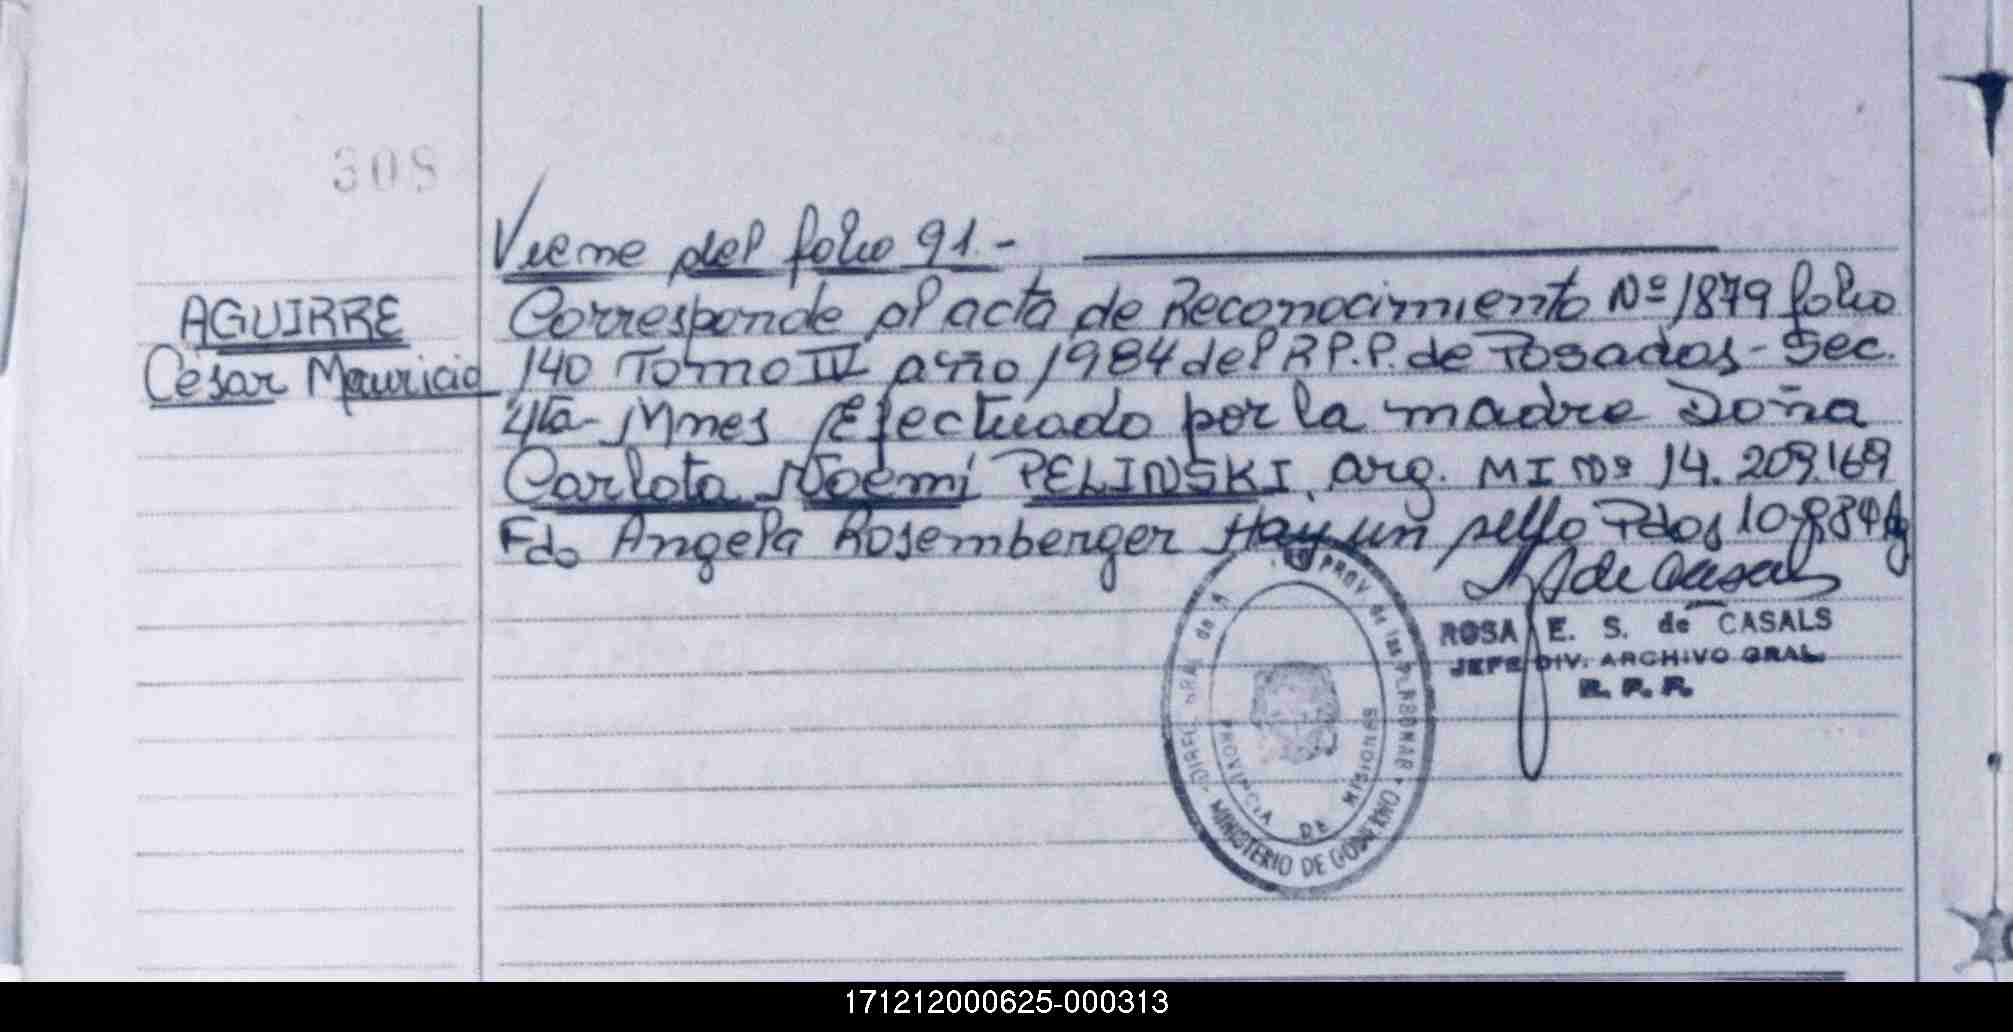 308
Viene del folio 91.-
AGUIRRE
César Mauricio
Corresponde al acta de Reconocimiento Nº 1879 folio
140 Tomo IV año 1984 del R.P.P. de Posadas - Sec.
4ta- Mnes Efectuado por la madre Doña
Carlota Noemí PELINSKI, arg. MI Nº 14.209.169
Fdo Angela Rosemberger Hay un sello Pdas
de Casals
ROSA E. S. de CASALS
JEFE DIV. ARCHIVO GRAL.
R. P. P.
PROV de las PERSONAS
MINISTERIO DE GOBIERNO
PROVINCIA DE MISIONES
171212000625-000313